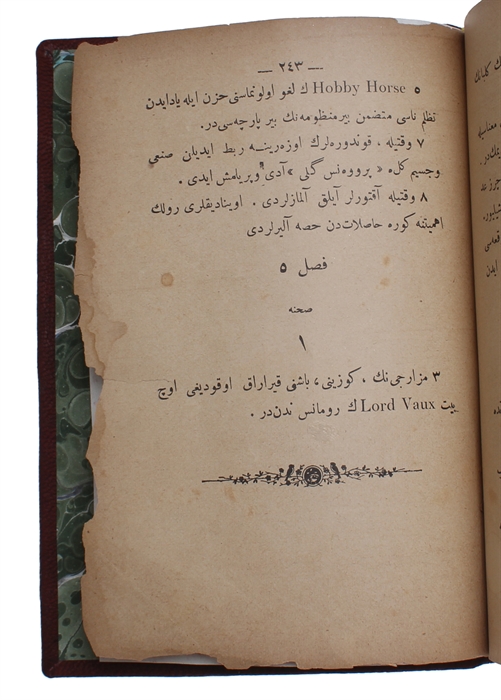 — ٢٤٣ —
٥ Hobby Horse ك لغو اولونماسنى حزن ايله ياد ايدن
تظلم ناسى متضمن بير منظومه‌نك بير پارچه‌سى‌در.
٧ وقتيله ، قوندوره‌لرك اوزه‌رينه ربط ايديلن صنعى
وجسيم كله « پرووه‌نس گلى » آدى ويريلمش ايدى .
٨ وقتيله آقتورلر آيلق آلمازلردى . اوينادیقلرى رولك
اهميتنه كوره حاصلات‌دن حصه آليرلردى
فصل ٥
صحنه
١
٣ مزارجى‌نك ، كوزينى ، باشنى قيراراق اوقوديغى اوچ
بيت Lord Vaux ك رومانس ندن‌در .